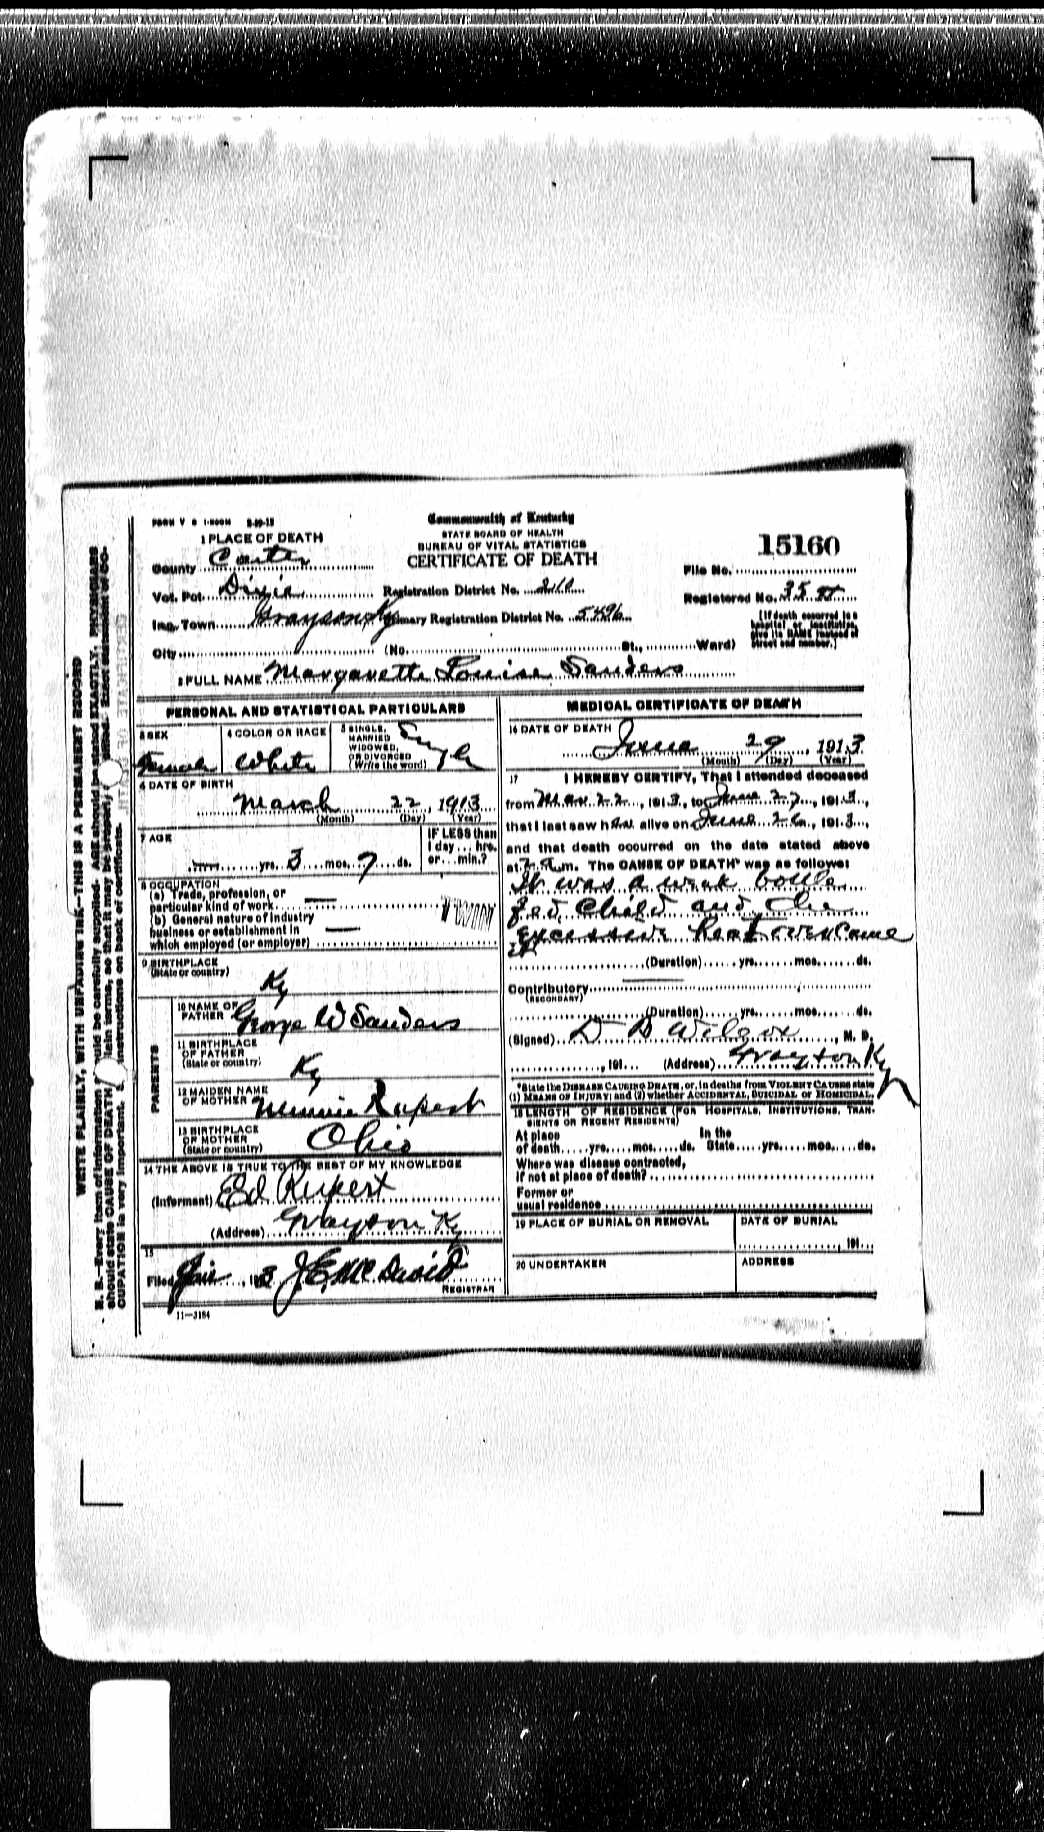 FORM V S 1-500M 2-10-12
Commonwealth of Kentucky
STATE BOARD OF HEALTH
BUREAU OF VITAL STATISTICS
CERTIFICATE OF DEATH
15160
File No.
Registered No. 35
[If death occurred in a hospital or institution, give its NAME instead of street and number.]
1 PLACE OF DEATH
County Carter
Vot. Pct. Dixie Registration District No. 210
Inc. Town Grayson Ky Primary Registration District No. 5496
City (No. St., Ward)
2 FULL NAME Margarette Louise Sanders
PERSONAL AND STATISTICAL PARTICULARS
3 SEX Female
4 COLOR OR RACE White
5 SINGLE, MARRIED WIDOWED, OR DIVORCED (Write the word) Single
6 DATE OF BIRTH
March 22, 1913
(Month) (Day) (Year)
7 AGE
yrs. 3 mos. 7 ds.
IF LESS than 1 day... hrs. or... min.?
8 OCCUPATION
(a) Trade, profession, or
particular kind of work
(b) General nature of industry
business or establishment in
which employed (or employer)
9 BIRTHPLACE
(State or country)
Ky
PARENTS
10 NAME OF FATHER George W Sanders
11 BIRTHPLACE OF FATHER (State or country) Ky
12 MAIDEN NAME OF MOTHER Minnie Rupert
13 BIRTHPLACE OF MOTHER (State or country) Ohio
14 THE ABOVE IS TRUE TO THE BEST OF MY KNOWLEDGE
(Informant) Ed Rupert
(Address) Grayson Ky
15
Filed , 1913 J. E. McDavid
REGISTRAR
11-3184
MEDICAL CERTIFICATE OF DEATH
16 DATE OF DEATH
June 29, 1913
(Month) (Day) (Year)
17 I HEREBY CERTIFY, That I attended deceased
from Mar 22, 1913, to June 27, 1913,
that I last saw her alive on June 26, 1913,
and that death occurred on the date stated above
at 2 a m. The CAUSE OF DEATH* was as follows:
It was a weak bottle
fed child and the
excessive heat overcame
it
(Duration) yrs. mos. ds.
Contributory
(SECONDARY)
(Duration) yrs. mos. ds.
(Signed) D B Wilcox, M. D.
, 191 (Address) Grayson Ky
*State the DISEASE CAUSING DEATH, or, in deaths from VIOLENT CAUSES state
(1) MEANS OF INJURY; and (2) whether ACCIDENTAL, SUICIDAL or HOMICIDAL.
18 LENGTH OF RESIDENCE (FOR HOSPITALS, INSTITUTIONS, TRAN-
SIENTS OR RECENT RESIDENTS)
At place of death yrs. mos. ds. In the State yrs. mos. ds.
Where was disease contracted,
if not at place of death?
Former or
usual residence
19 PLACE OF BURIAL OR REMOVAL
DATE OF BURIAL
, 191
20 UNDERTAKER
ADDRESS
WRITE PLAINLY, WITH UNFADING INK—THIS IS A PERMANENT RECORD
N. B.—Every item of information should be carefully supplied. AGE should be stated EXACTLY. PHYSICIANS
should state CAUSE OF DEATH in plain terms, so that it may be properly classified. Exact statement of OC-
CUPATION is very important. See instructions on back of certificate.